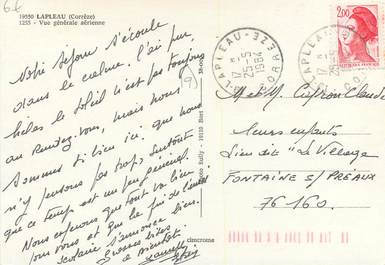 6€
19550 LAPLEAU (Corrèze)
1255 - Vue générale aérienne
Notre séjour s'écoule
dans le calme. L'air pur
hélas le soleil n'est pas toujours
au rendez-vous, mais nous
sommes si bien ici que nous
n'y pensons pas trop, surtout
que ce temps est un peu général.
Nous espérons que tout va bien
pour vous et que la fin de l'année
scolaire s'annonce bien.
Grosses bises
à bientôt.
LAPLEAU CORREZE
17 H
25-5
1984
LAPLEAU
17 H
25-5
2,00
M et M. Claude
leurs enfants
Lieu dit "Le Village
FONTAINE S/ PRÉAUX
76160.
cimcrome